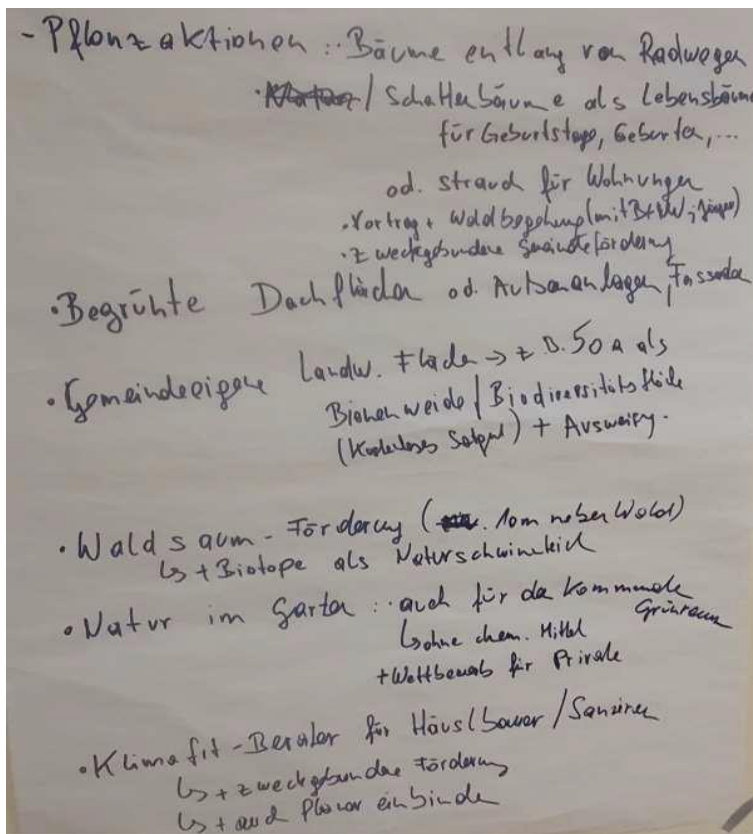 - Pflanzaktionen: Bäume entlang von Radwegen
/ Schattenbäume als Lebensbäume
für Geburtstage, Geburten, ...
od. Strauch für Wohnungen
• Vortrag + Waldbegehung (mit Jäger)
• zweckgebundene Gemeindeförderung
• Begrünte Dachflächen od. Außenanlagen, Fassaden
• Gemeindeeigene Landw. Fläche → z.B. 50 a als
Bienenweide / Biodiversitätsfläche
(Kostenloses Saatgut) + Ausweisung.
• Waldsaum-Förderung (10m neben Wald)
↳ + Biotope als
• Natur im Garten: auch für den kommunale
Grünraum
↳ ohne chem. Mittel
+ Wettbewerb für Private
• Klimafit-Berater für Häuslbauer / Sanierer
↳ + zweckgebundene Förderung
↳ + auch Planer einbinden